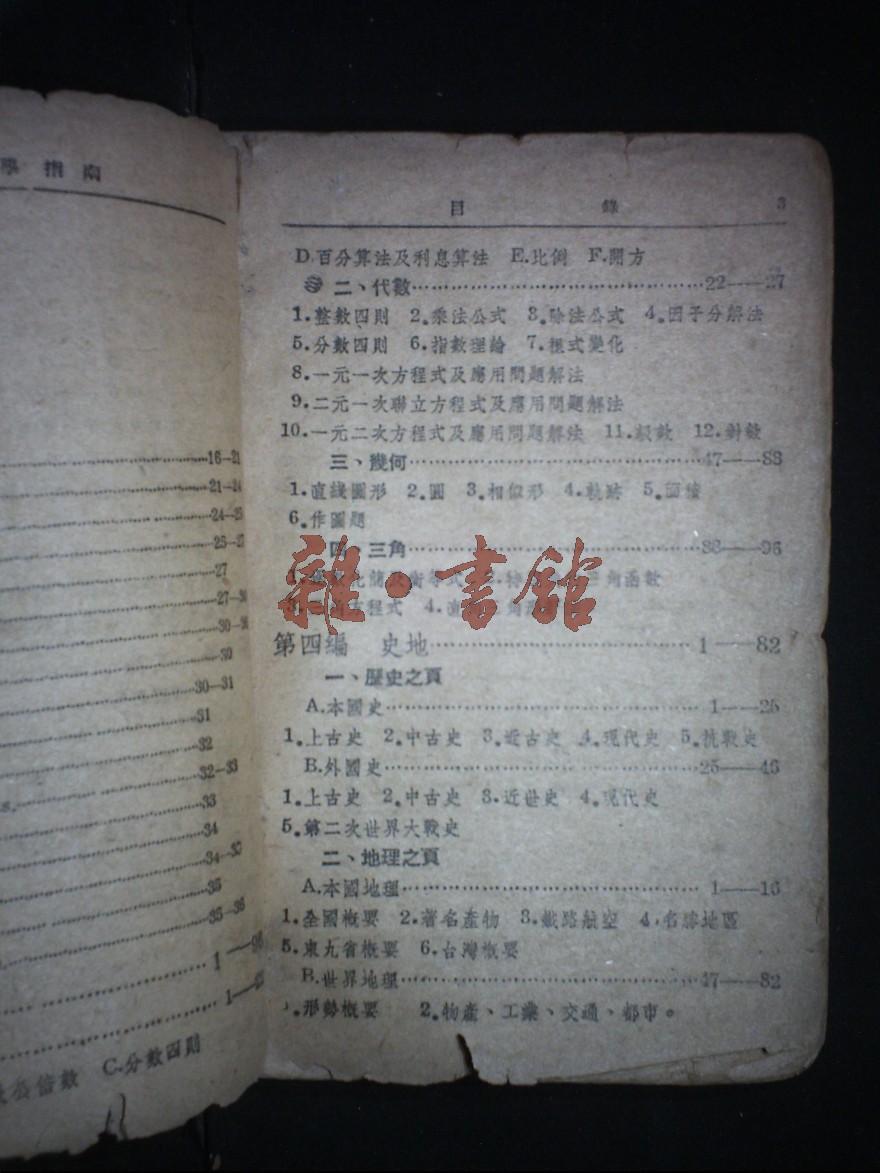 學 指 南
16—21
21—24
24—25
25—27
27
27—30
30
30—31
31
32
32—33
s.
33
34
34—35
35
35—36
1—96
1—
公倍數 C.分數四則
目 錄 3
D.百分算法及利息算法 E.比例 F.開方
二、代數 22——27
1.整數四則 2.乘法公式 3.除法公式 4.因子分解法
5.分數四則 6.指數理論 7.根式變化
8.一元一次方程式及應用問題解法
9.二元一次聯立方程式及應用問題解法
10.一元二次方程式及應用問題解法 11.級數 12.對數
三、幾何 47——88
1.直綫圖形 2.圓 3.相似形 4.軌跡 5.面積
6.作圖題
四、三角 88——96
化簡及衡等式 角函數
方程式 4.
雜·書館
第四編 史地 1——82
一、歷史之頁
A.本國史 1——25
1.上古史 2.中古史 3.近古史 4.現代史 5.抗戰史
B.外國史 25——46
1.上古史 2.中古史 3.近世史 4.現代史
5.第二次世界大戰史
二、地理之頁
A.本國地理 1——16
1.全國概要 2.著名產物 3.鐵路航空 4.名勝地區
5.東九省概要 6.台灣概要
B.世界地理 47——82
1.形勢概要 2.物產、工業、交通、都市。